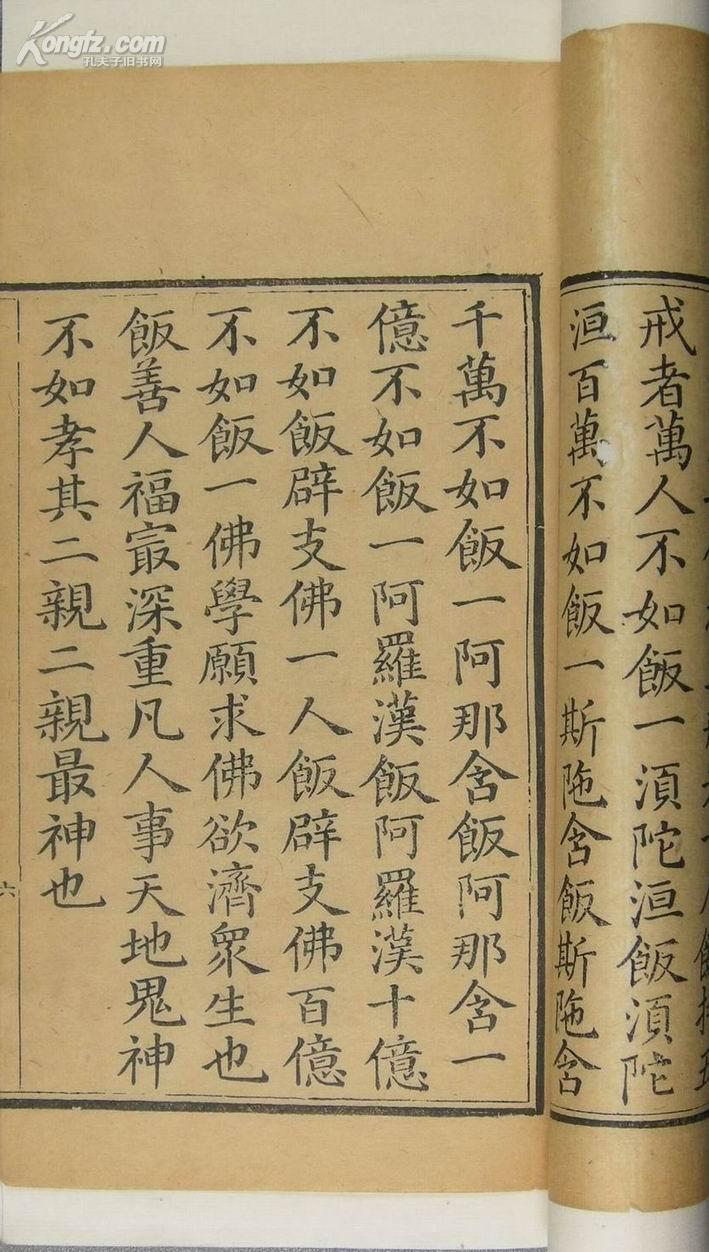 Kongfz.com
孔夫子旧书网
戒者萬人不如飯一湏陀洹飯湏陀
洹百萬不如飯一斯陁含飯斯陁含
千萬不如飯一阿那含飯阿那含一
億不如飯一阿羅漢飯阿羅漢十億
不如飯辟支佛一人飯辟支佛百億
不如飯一佛學願求佛欲濟衆生也
飯善人福㝡深重凡人事天地鬼神
不如孝其二親二親最神也
六